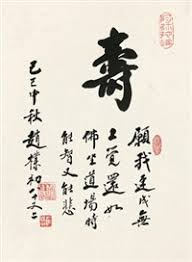 壽
願我速成無
上覺還如
佛坐道場時
能智又能悲
己巳中秋趙樸初